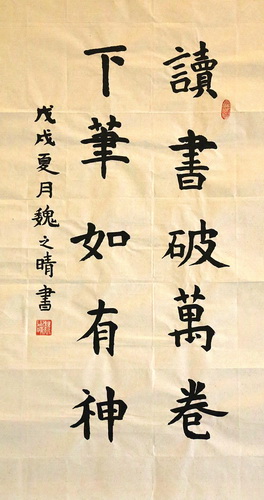 讀書破萬卷
下筆如有神
戊戌夏月魏之晴書